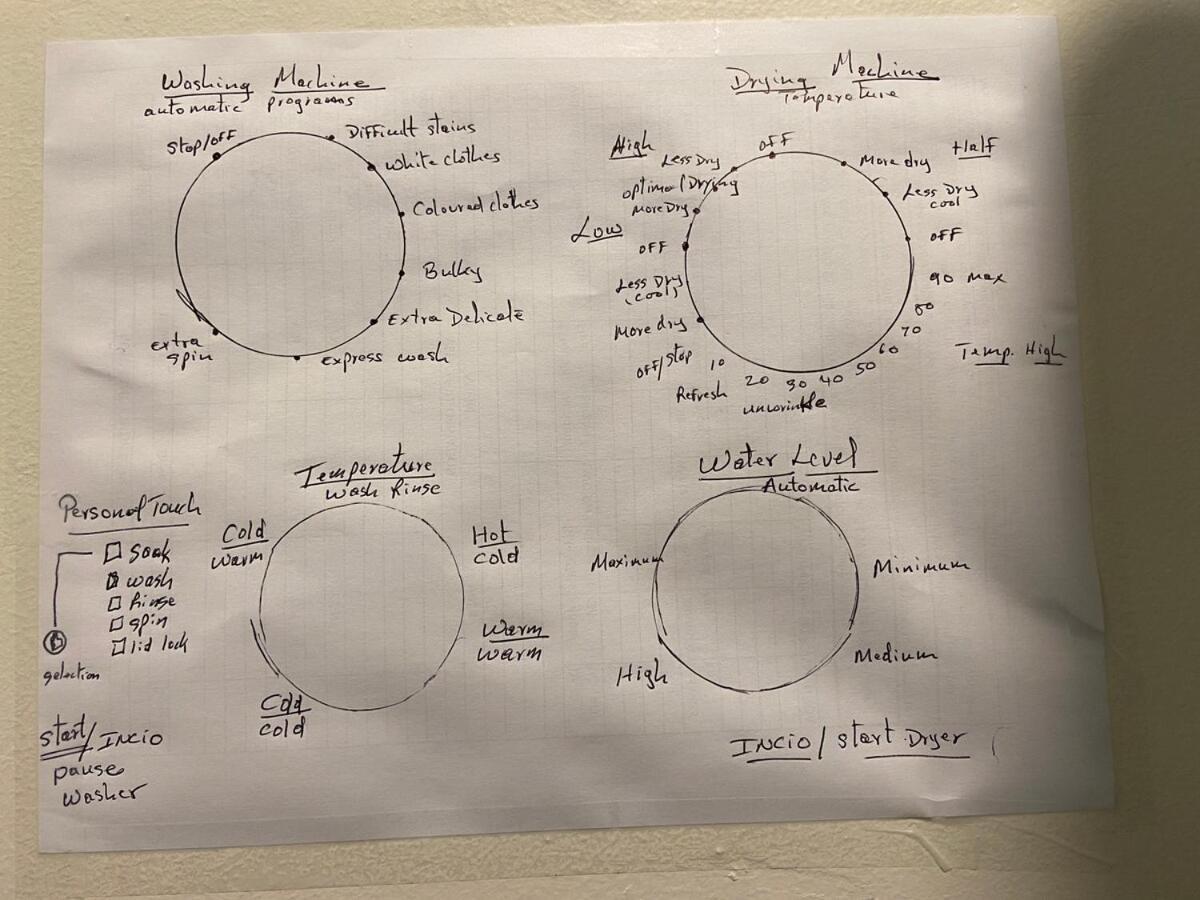 Washing Machine
automatic programs
Stop/off
Difficult stains
White clothes
Coloured clothes
Bulky
Extra Delicate
Express wash
extra
spin
Drying Machine
Temperature
High
Less Dry
optimal Drying
More Dry
Low
OFF
Less Dry
(cool)
More dry
OFF/Stop
OFF
More dry
Half
Less Dry
cool
OFF
90 Max
80
70
60
50
40
30
20
10
Refresh
unwrinkle
Temp. High
Temperature
Wash Rinse
Cold
warm
Hot
Cold
Warm
warm
Cold
cold
Personal Touch
Soak
wash
Rinse
spin
lid lock
selection
Start/INCIO
pause
washer
Water Level
Automatic
Maximum
Minimum
Medium
High
INCIO/start Dryer